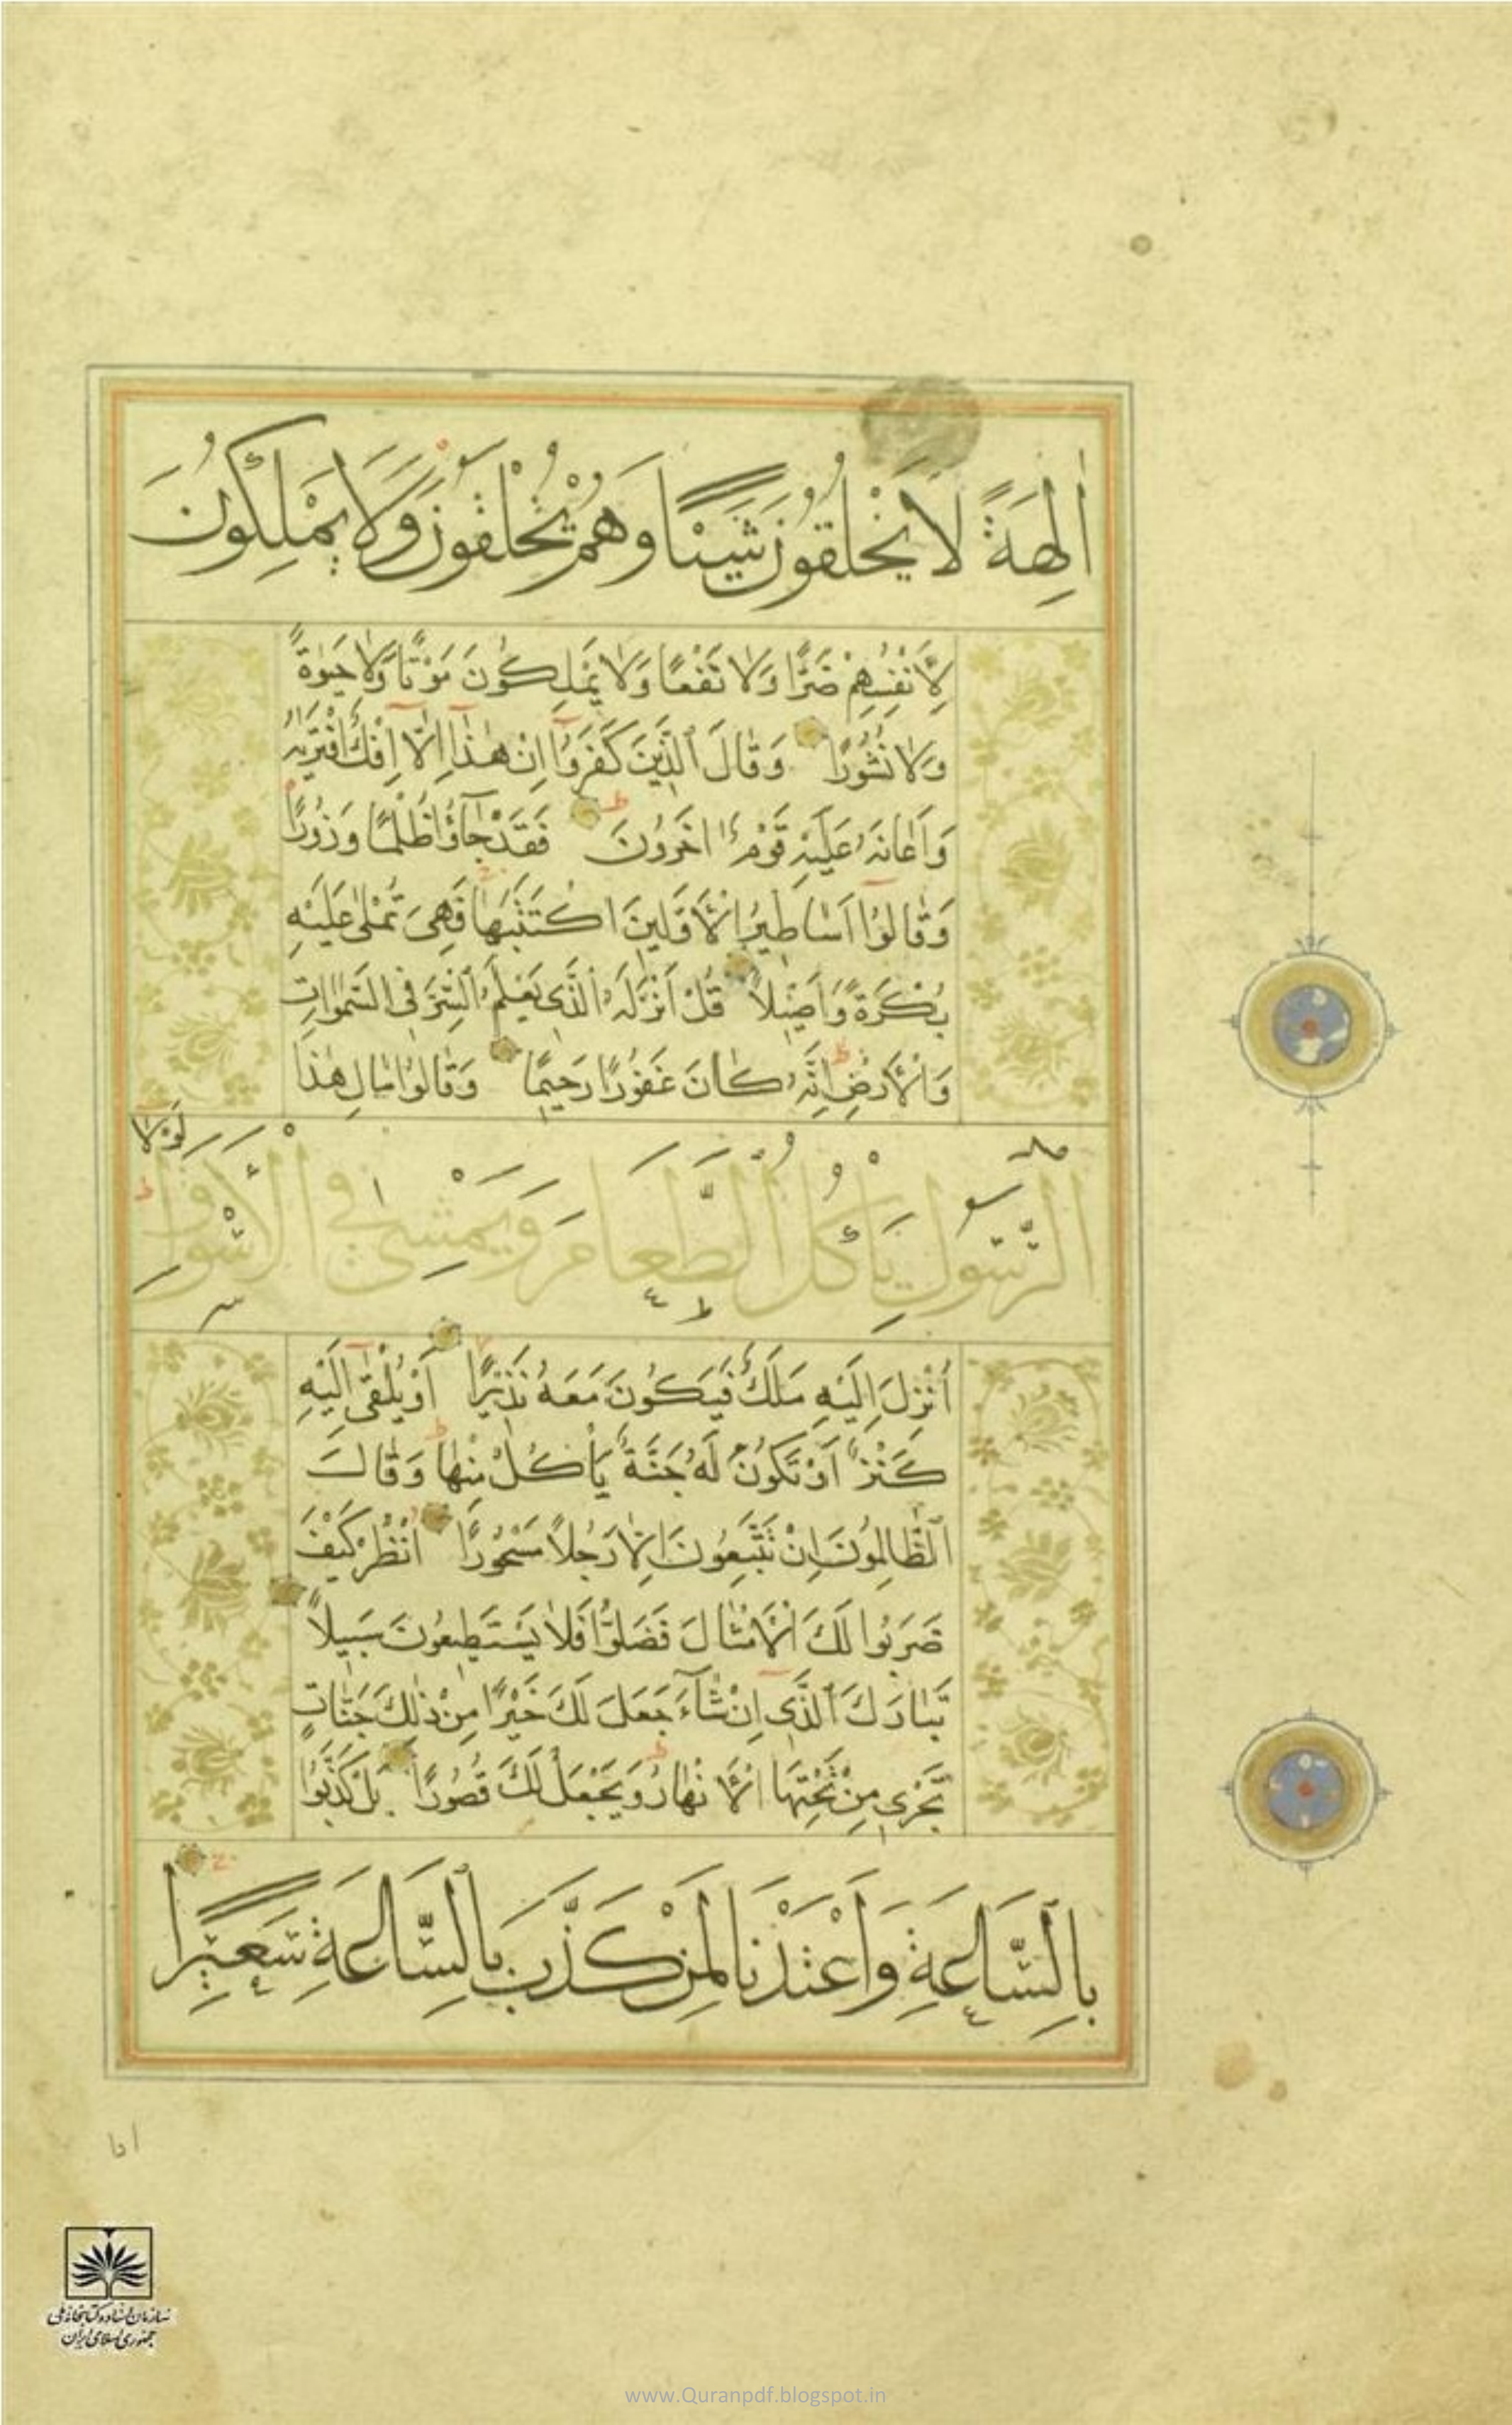 اٰلِهَةً لَا يَخْلُقُونَ شَيْئًا وَهُمْ يُخْلَقُونَ وَلَا يَمْلِكُونَ
لِاَنْفُسِهِمْ ضَرًّا وَلَا نَفْعًا وَلَا يَمْلِكُونَ مَوْتًا وَلَا حَيٰوةً
وَلَا نُشُورًا وَقَالَ الَّذِينَ كَفَرُوا اِنْ هٰذَا اِلَّا اِفْكٌ افْتَرٰيهُ
وَاَعَانَهُ عَلَيْهِ قَوْمٌ اٰخَرُونَ فَقَدْ جَآؤُا ظُلْمًا وَزُورًا
وَقَالُوا اَسَاطِيرُ الْاَوَّلِينَ اكْتَتَبَهَا فَهِيَ تُمْلٰى عَلَيْهِ
بُكْرَةً وَاَصِيلًا قُلْ اَنْزَلَهُ الَّذِي يَعْلَمُ السِّرَّ فِي السَّمٰوَاتِ
وَالْاَرْضِ اِنَّهُ كَانَ غَفُورًا رَحِيمًا وَقَالُوا مَالِ هٰذَا
الرَّسُولِ يَأْكُلُ الطَّعَامَ وَيَمْشِي فِي الْاَسْوَاقِ لَوْلَا
اُنْزِلَ اِلَيْهِ مَلَكٌ فَيَكُونَ مَعَهُ نَذِيرًا اَوْ يُلْقٰى اِلَيْهِ
كَنْزٌ اَوْ تَكُونُ لَهُ جَنَّةٌ يَأْكُلُ مِنْهَا وَقَالَ
الظَّالِمُونَ اِنْ تَتَّبِعُونَ اِلَّا رَجُلًا مَسْحُورًا اُنْظُرْ كَيْفَ
ضَرَبُوا لَكَ الْاَمْثَالَ فَضَلُّوا فَلَا يَسْتَطِيعُونَ سَبِيلًا
تَبَارَكَ الَّذِي اِنْ شَآءَ جَعَلَ لَكَ خَيْرًا مِنْ ذٰلِكَ جَنَّاتٍ
تَجْرِي مِنْ تَحْتِهَا الْاَنْهَارُ وَيَجْعَلْ لَكَ قُصُورًا بَلْ كَذَّبُوا
بِالسَّاعَةِ وَاَعْتَدْنَا لِمَنْ كَذَّبَ بِالسَّاعَةِ سَعِيرًا
سازمان اسناد و کتابخانه ملی
جمهوری اسلامی ایران
www.Quranpdf.blogspot.in